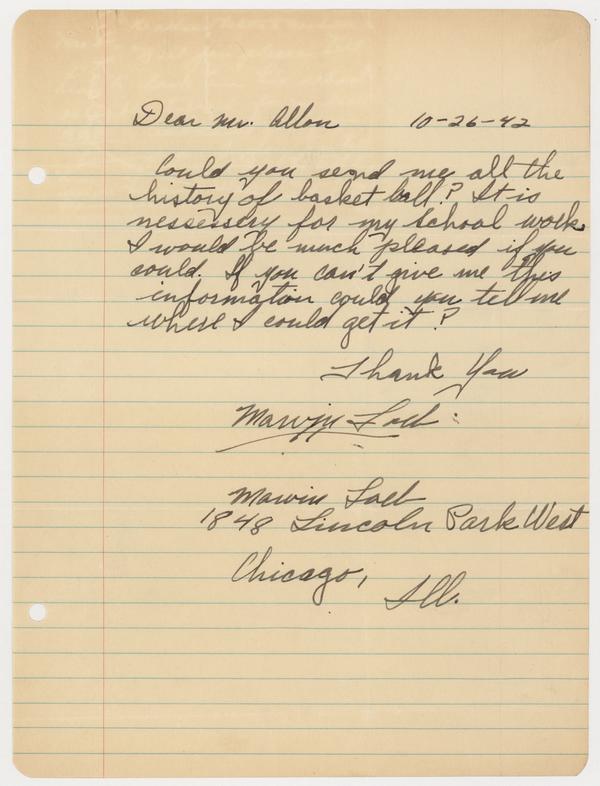 Dear Mr. Allon 10-26-42
Could you send me all the
history of basket ball? It is
nessessery for my School work.
I would be much pleased if you
could. If you can't give me this
information could you tell me
where I could get it?
Thank You
Marvin Loeb
Marvin Loeb
1848 Lincoln Park West
Chicago,
Ill.